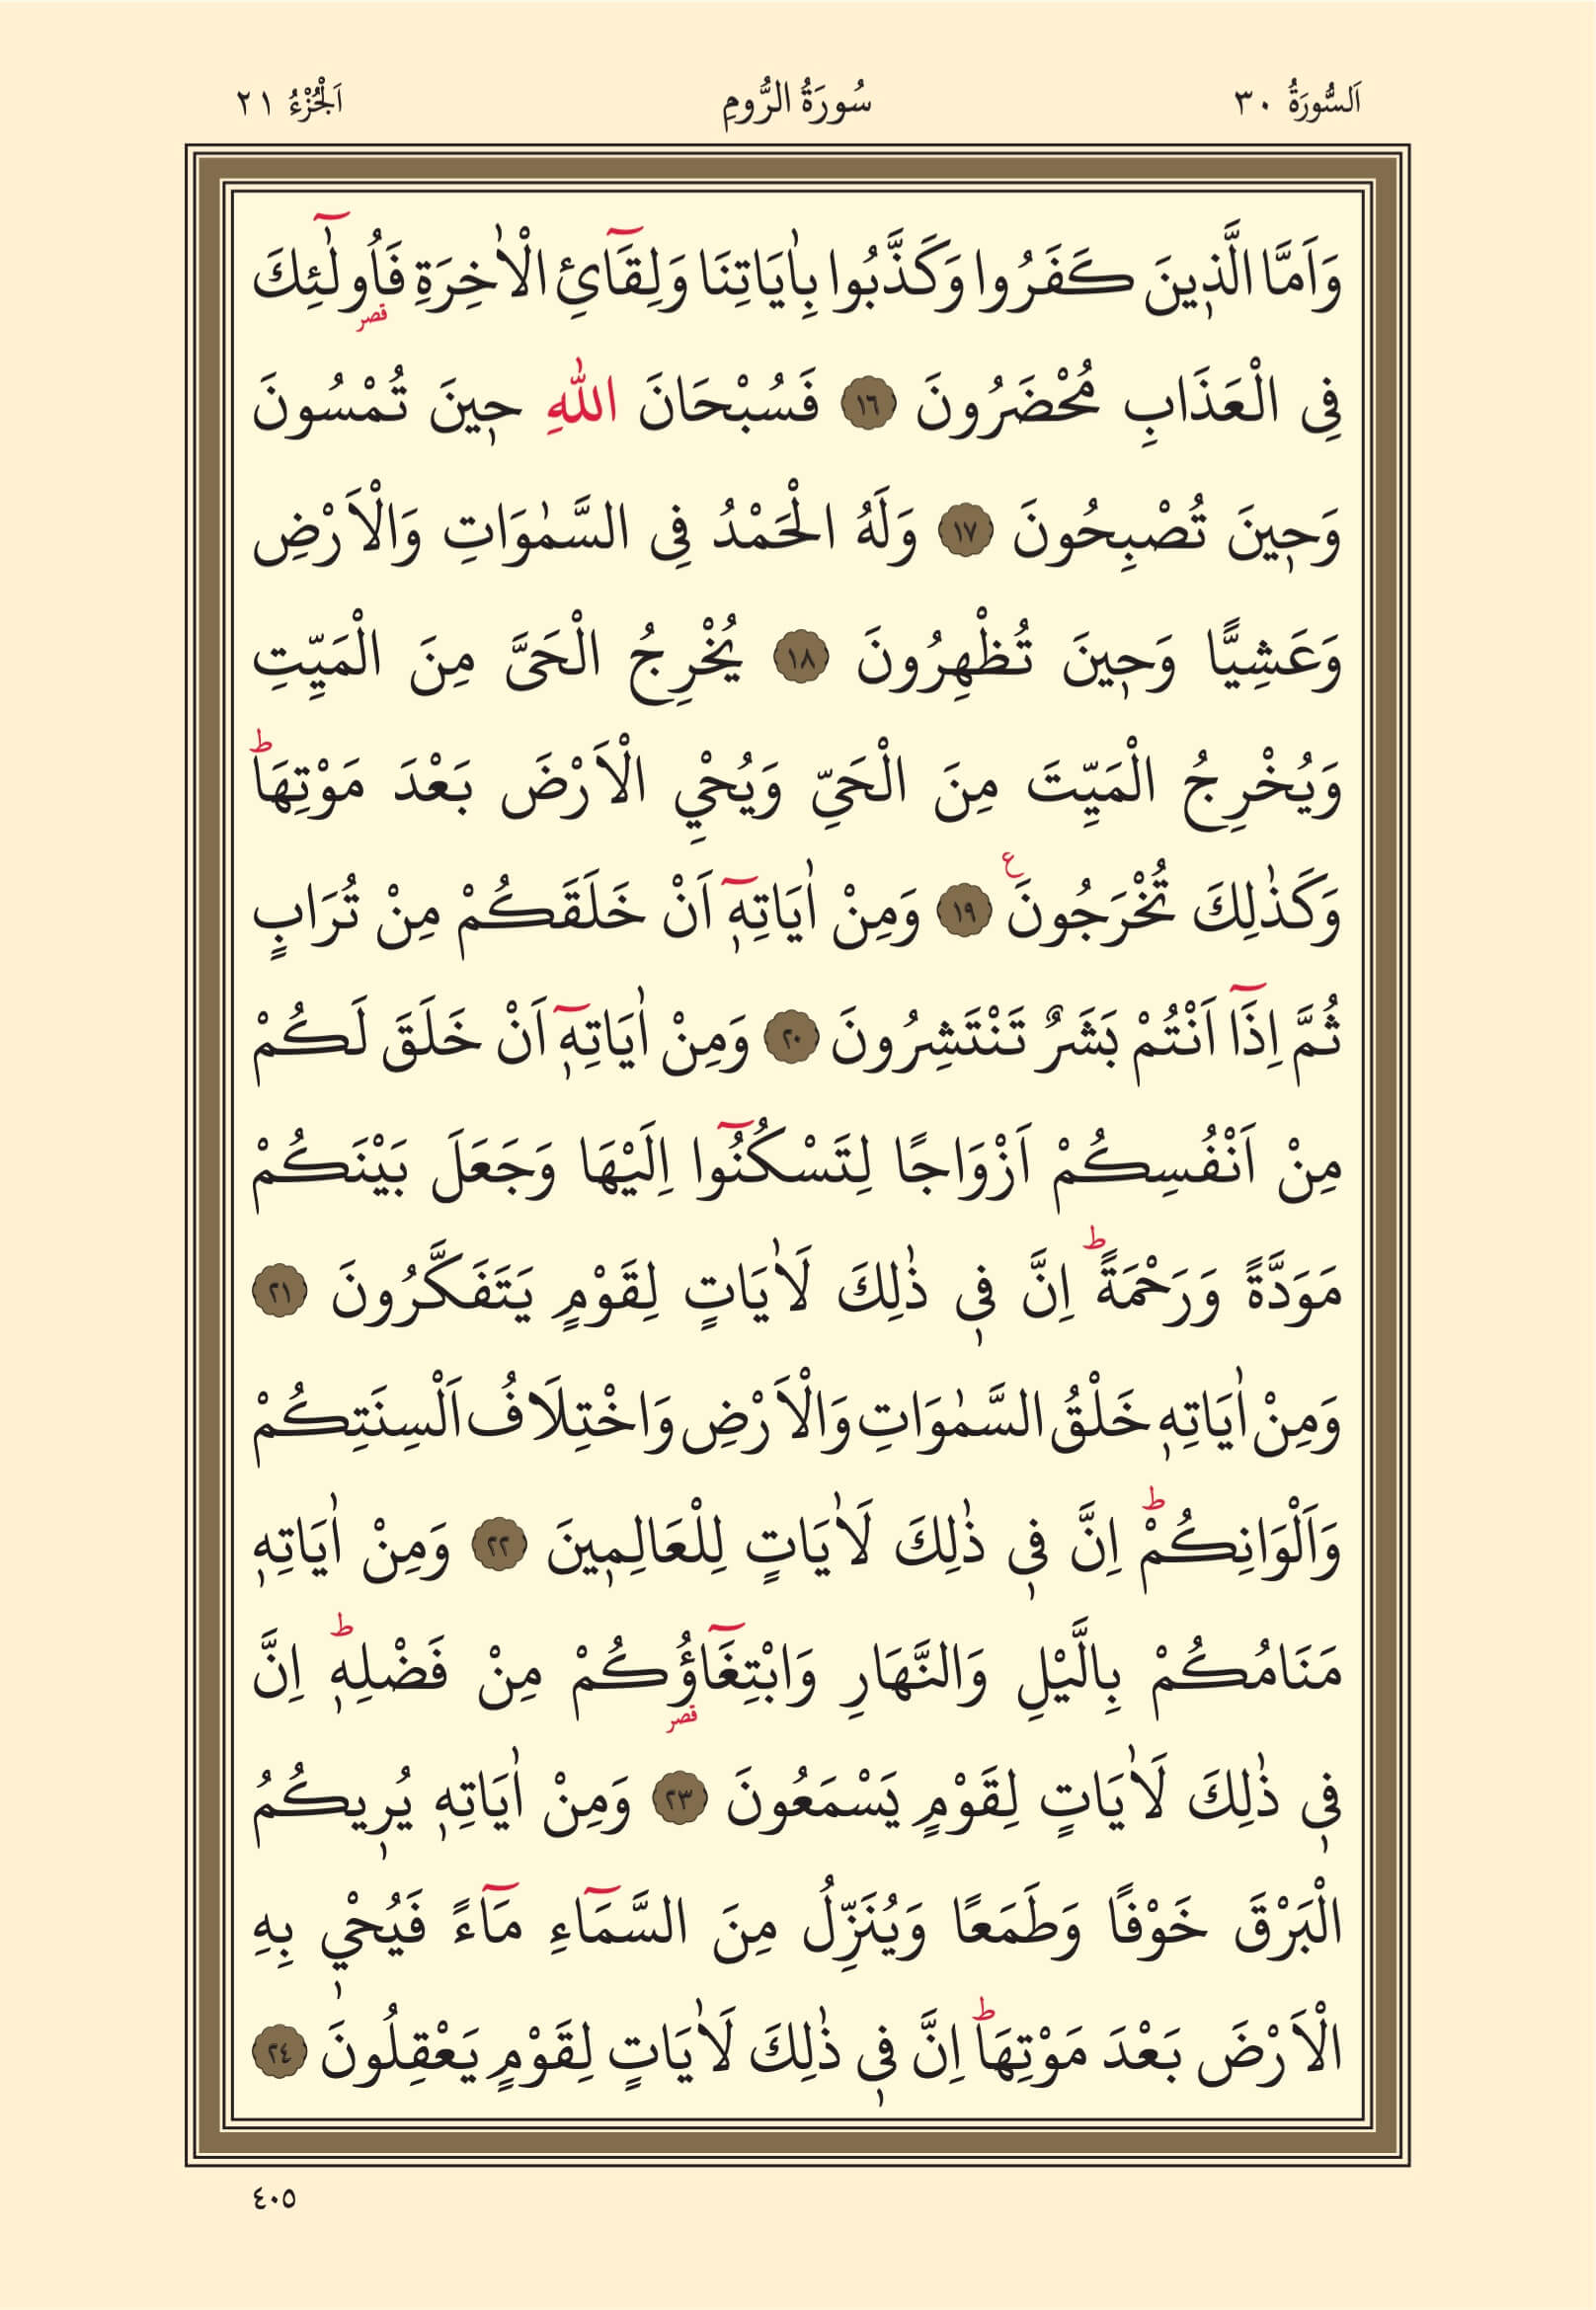 اَلسُّورَةُ ٣٠ سُورَةُ الرُّومِ اَلْجُزْءُ ٢١
وَاَمَّا الَّذ۪ينَ كَفَرُوا وَكَذَّبُوا بِاٰيَاتِنَا وَلِقَٓائِ الْاٰخِرَةِ فَاُو۬لٰٓئِكَ
قصر
فِى الْعَذَابِ مُحْضَرُونَ ١٦ فَسُبْحَانَ اللّٰهِ ح۪ينَ تُمْسُونَ
وَح۪ينَ تُصْبِحُونَ ١٧ وَلَهُ الْحَمْدُ فِى السَّمٰوَاتِ وَالْاَرْضِ
وَعَشِيًّا وَح۪ينَ تُظْهِرُونَ ١٨ يُخْرِجُ الْحَىَّ مِنَ الْمَيِّتِ
وَيُخْرِجُ الْمَيِّتَ مِنَ الْحَىِّ وَيُحْيِ الْاَرْضَ بَعْدَ مَوْتِهَاۜ
وَكَذٰلِكَ تُخْرَجُونَ ع ١٩ وَمِنْ اٰيَاتِه۪ٓ اَنْ خَلَقَكُمْ مِنْ تُرَابٍ
ثُمَّ اِذَٓا اَنْتُمْ بَشَرٌ تَنْتَشِرُونَ ٢٠ وَمِنْ اٰيَاتِه۪ٓ اَنْ خَلَقَ لَكُمْ
مِنْ اَنْفُسِكُمْ اَزْوَاجًا لِتَسْكُنُٓوا اِلَيْهَا وَجَعَلَ بَيْنَكُمْ
مَوَدَّةً وَرَحْمَةًۜ اِنَّ ف۪ى ذٰلِكَ لَاٰيَاتٍ لِقَوْمٍ يَتَفَكَّرُونَ ٢١
وَمِنْ اٰيَاتِه۪ خَلْقُ السَّمٰوَاتِ وَالْاَرْضِ وَاخْتِلَافُ اَلْسِنَتِكُمْ
وَاَلْوَانِكُمْۜ اِنَّ ف۪ى ذٰلِكَ لَاٰيَاتٍ لِلْعَالِم۪ينَ ٢٢ وَمِنْ اٰيَاتِه۪
مَنَامُكُمْ بِالَّيْلِ وَالنَّهَارِ وَابْتِغَٓاؤُ۬كُمْ مِنْ فَضْلِه۪ۜ اِنَّ
قصر
ف۪ى ذٰلِكَ لَاٰيَاتٍ لِقَوْمٍ يَسْمَعُونَ ٢٣ وَمِنْ اٰيَاتِه۪ يُر۪يكُمُ
الْبَرْقَ خَوْفًا وَطَمَعًا وَيُنَزِّلُ مِنَ السَّمَٓاءِ مَٓاءً فَيُحْي۪ بِهِ
الْاَرْضَ بَعْدَ مَوْتِهَاۜ اِنَّ ف۪ى ذٰلِكَ لَاٰيَاتٍ لِقَوْمٍ يَعْقِلُونَ ٢٤
٤٠٥